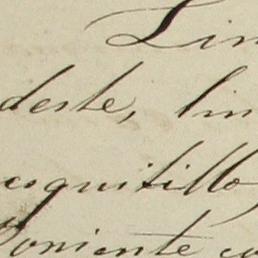 Lin
deste, lin
esquitillo,
Poniente co